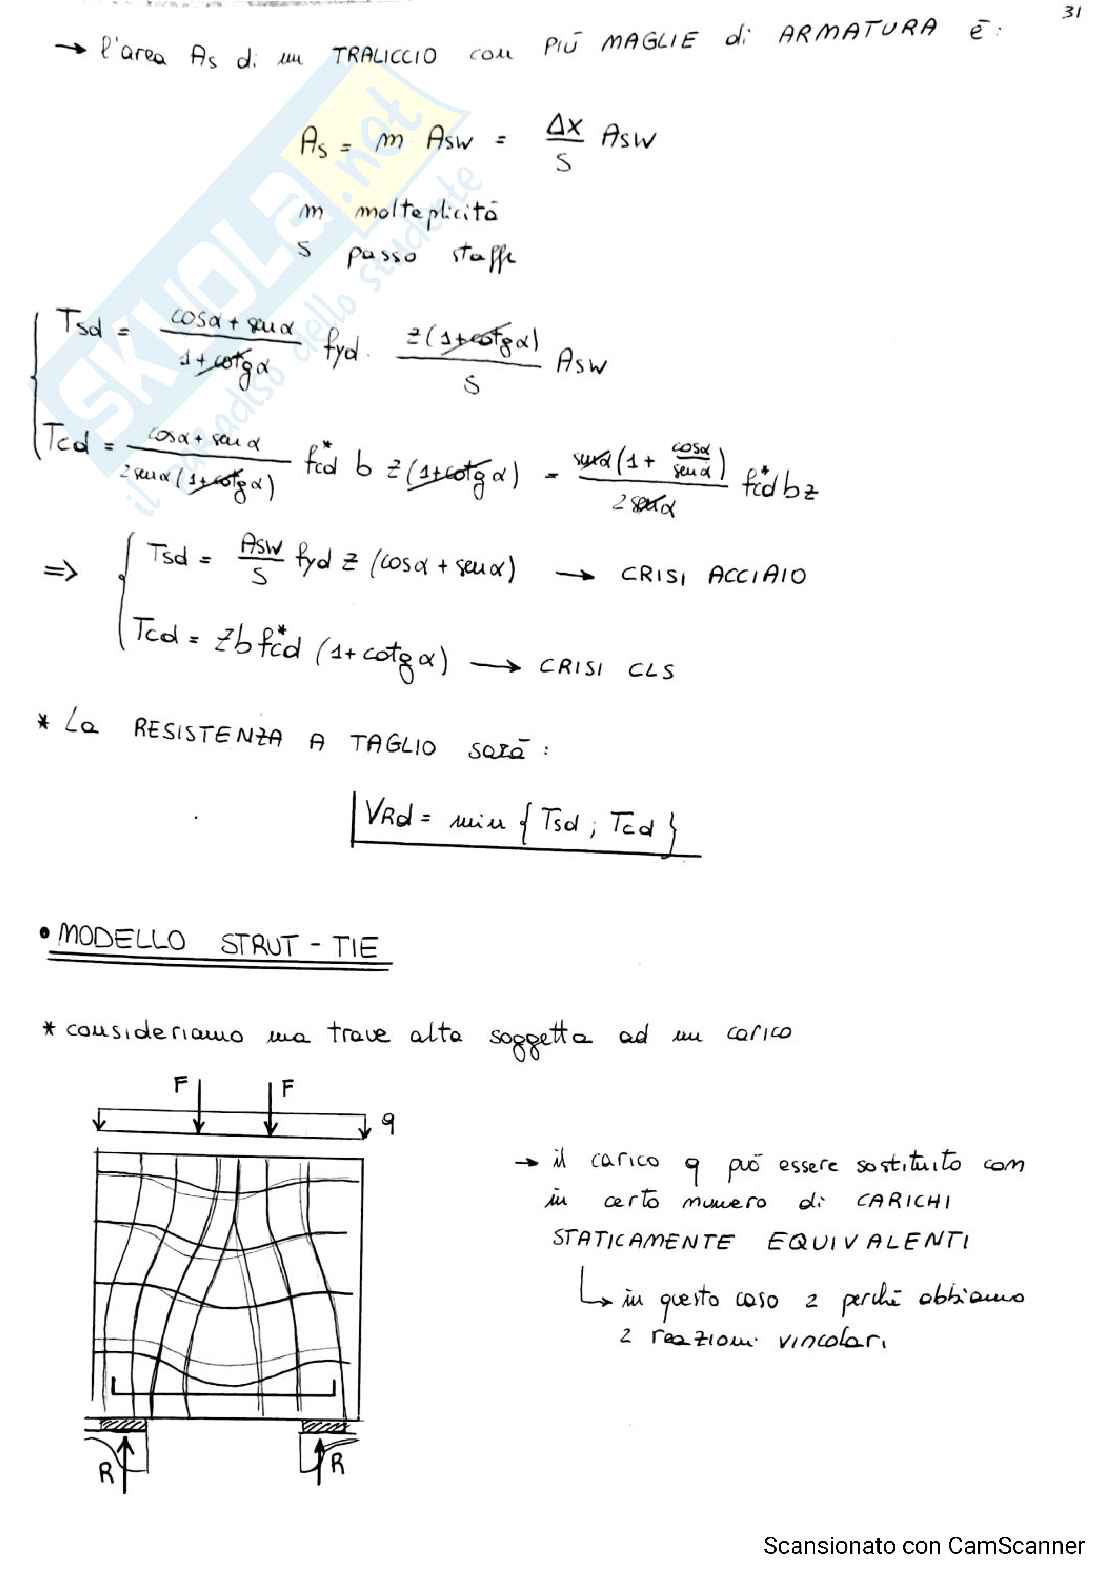 31
→ l'area As di un TRALICCIO con PIÙ MAGLIE di ARMATURA è:
As = m Asw = Δx/s Asw
m molteplicità
s passo staffe
Tsd = (cosα + senα)/(1 + cotgα) fyd · z(1 + cotgα)/s Asw
Tcd = (cosα + senα)/(2 senα (1 + cotgα)) fcd* b z (1 + cotgα) = senα (1 + cosα/senα)/(2 senα) fcd* b z
⇒ Tsd = Asw/s fyd z (cosα + senα) → CRISI ACCIAIO
Tcd = z b fcd* (1 + cotgα) → CRISI CLS
* La RESISTENZA A TAGLIO sarà:
VRd = min { Tsd ; Tcd }
• MODELLO STRUT - TIE
* consideriamo una trave alta soggetta ad un carico
F F
q
→ il carico q può essere sostituito con
un certo numero di CARICHI
STATICAMENTE EQUIVALENTI
↳ in questo caso 2 perchè abbiamo
2 reazioni vincolari
R R
SKUOLA.net
il paradiso dello studente
Scansionato con CamScanner